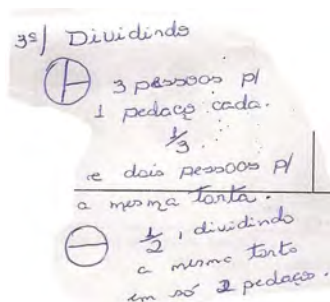 3º) Dividindo
3 pessoas p/
1 pedaço cada.
1/3
e dois pessoos p/
a mesma torta.
1/2, dividindo
a mesma torta
em só 2 pedaços.